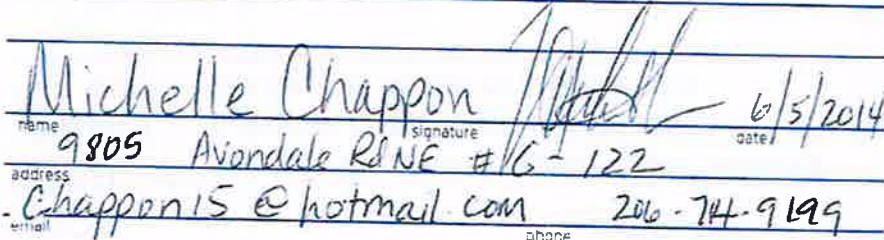 Michelle Chappon 6/5/2014
name signature date
9805 Avondale Rd NE # G-122
address
Chappon15@hotmail.com 206-714-9199
email phone